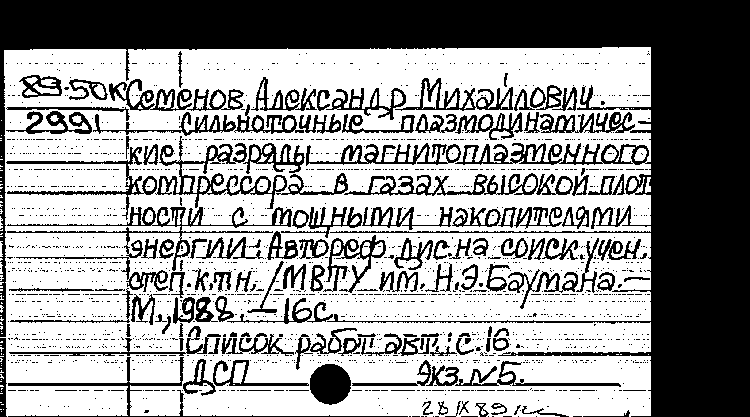 89-50к Семенов, Александр Михайлович.
2991 Сильноточные плазмодинамичес-
кие разряды магнитоплазменного
компрессора в газах высокой плот
ности с мощными накопителями
энергии: Автореф. дис. на соиск. учен.
степ. к.т.н. /МВТУ им. Н.Э.Баумана.—
М., 1988. — 16с.
Список работ авт.: с.16.
ДСП Экз. №5.
28 IX 89